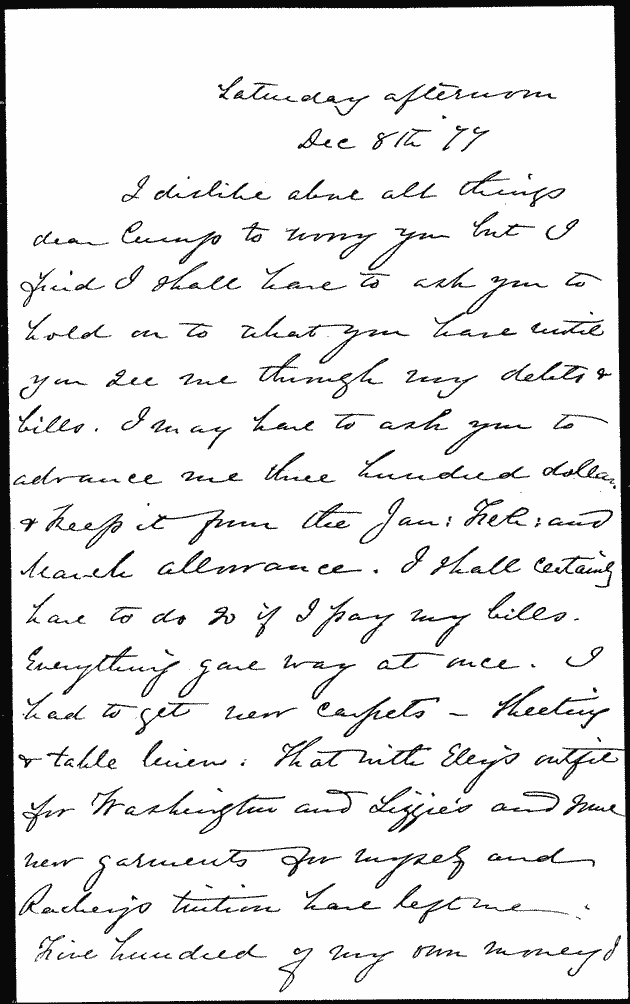 Saturday afternoon
Dec 8th '77
I dislike above all things
dear Cump to worry you but I
find I shall have to ask you to
hold on to what you have until
you see me through my debts &
bills. I may have to ask you to
advance me three hundred dollars
& keep it from the Jan: Feb: and
March allowance. I shall certainly
have to do so if I pay my bills.
Everything gave way at once. I
had to get new carpets – sheeting
& table linen. That with Elly's outfit
for Washington and Lizzie's and some
new garments for myself and
Rachey's tuition have left me
Five hundred of my own money I